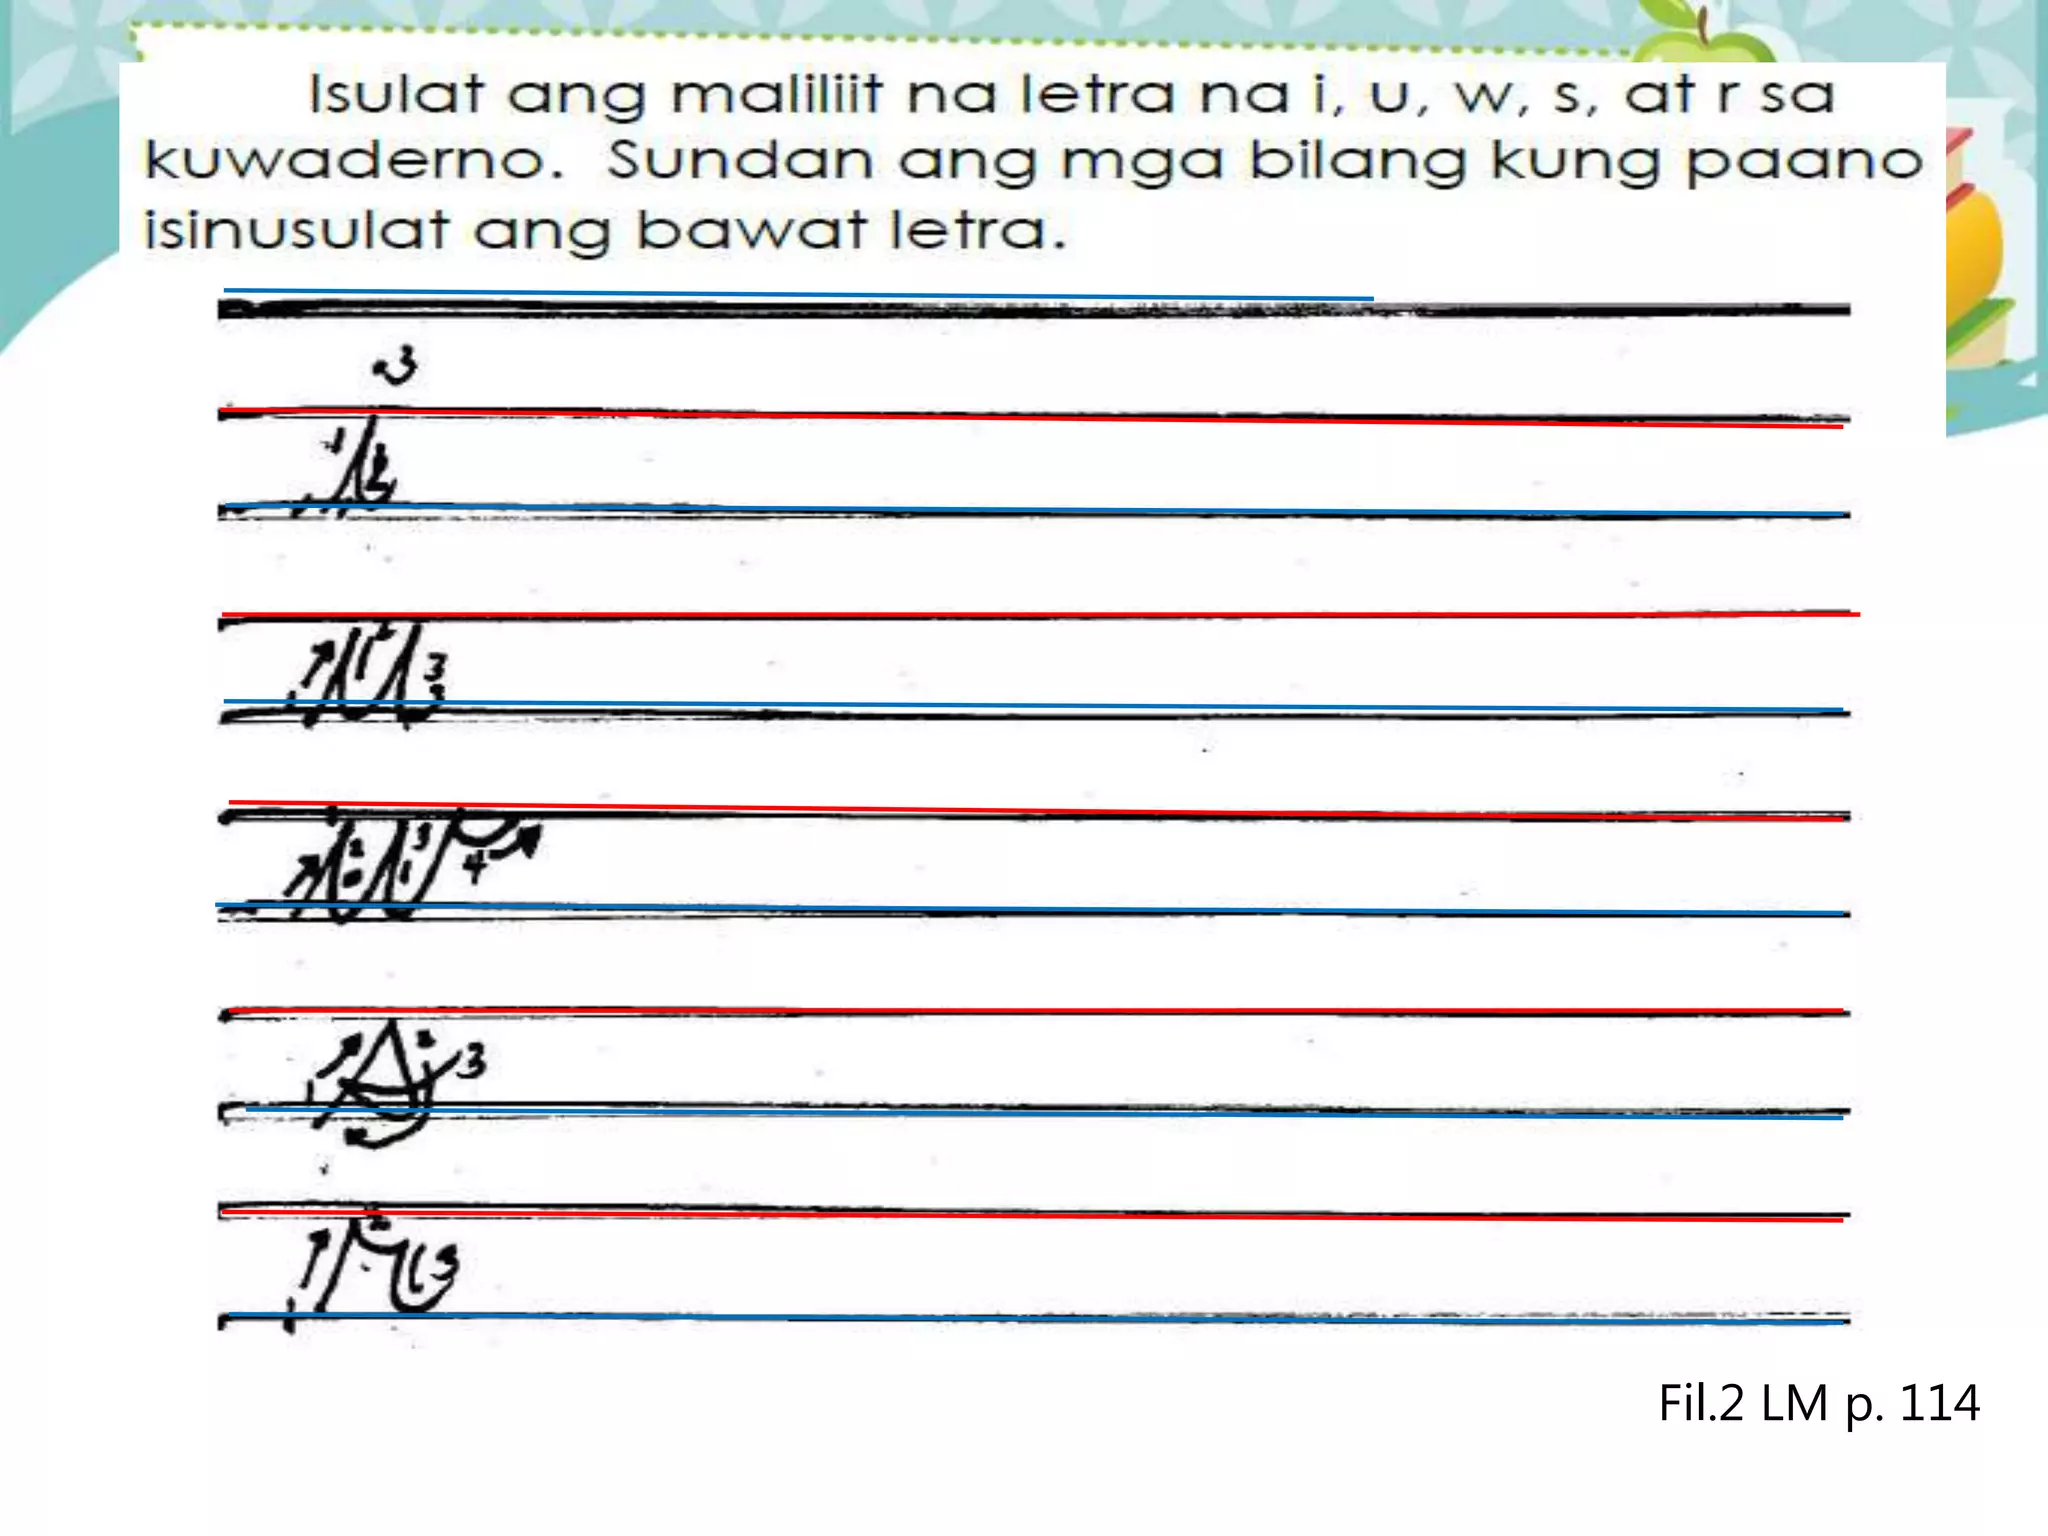 Isulat ang maliliit na letra na i, u, w, s, at r sa
kuwaderno. Sundan ang mga bilang kung paano
isinusulat ang bawat letra.
3
1 i 2
1 u 2 3
w 2 3 4
1 s 2 3
1 r 2 3
Fil.2 LM p. 114